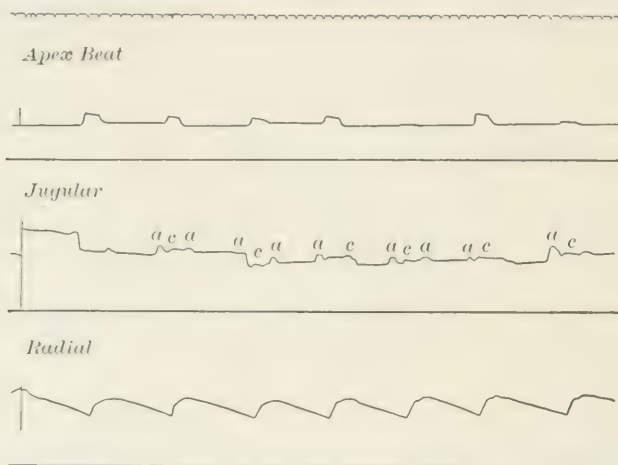 Apex Beat
Jugular
a c a a c a a c a c a a c a c
Radial